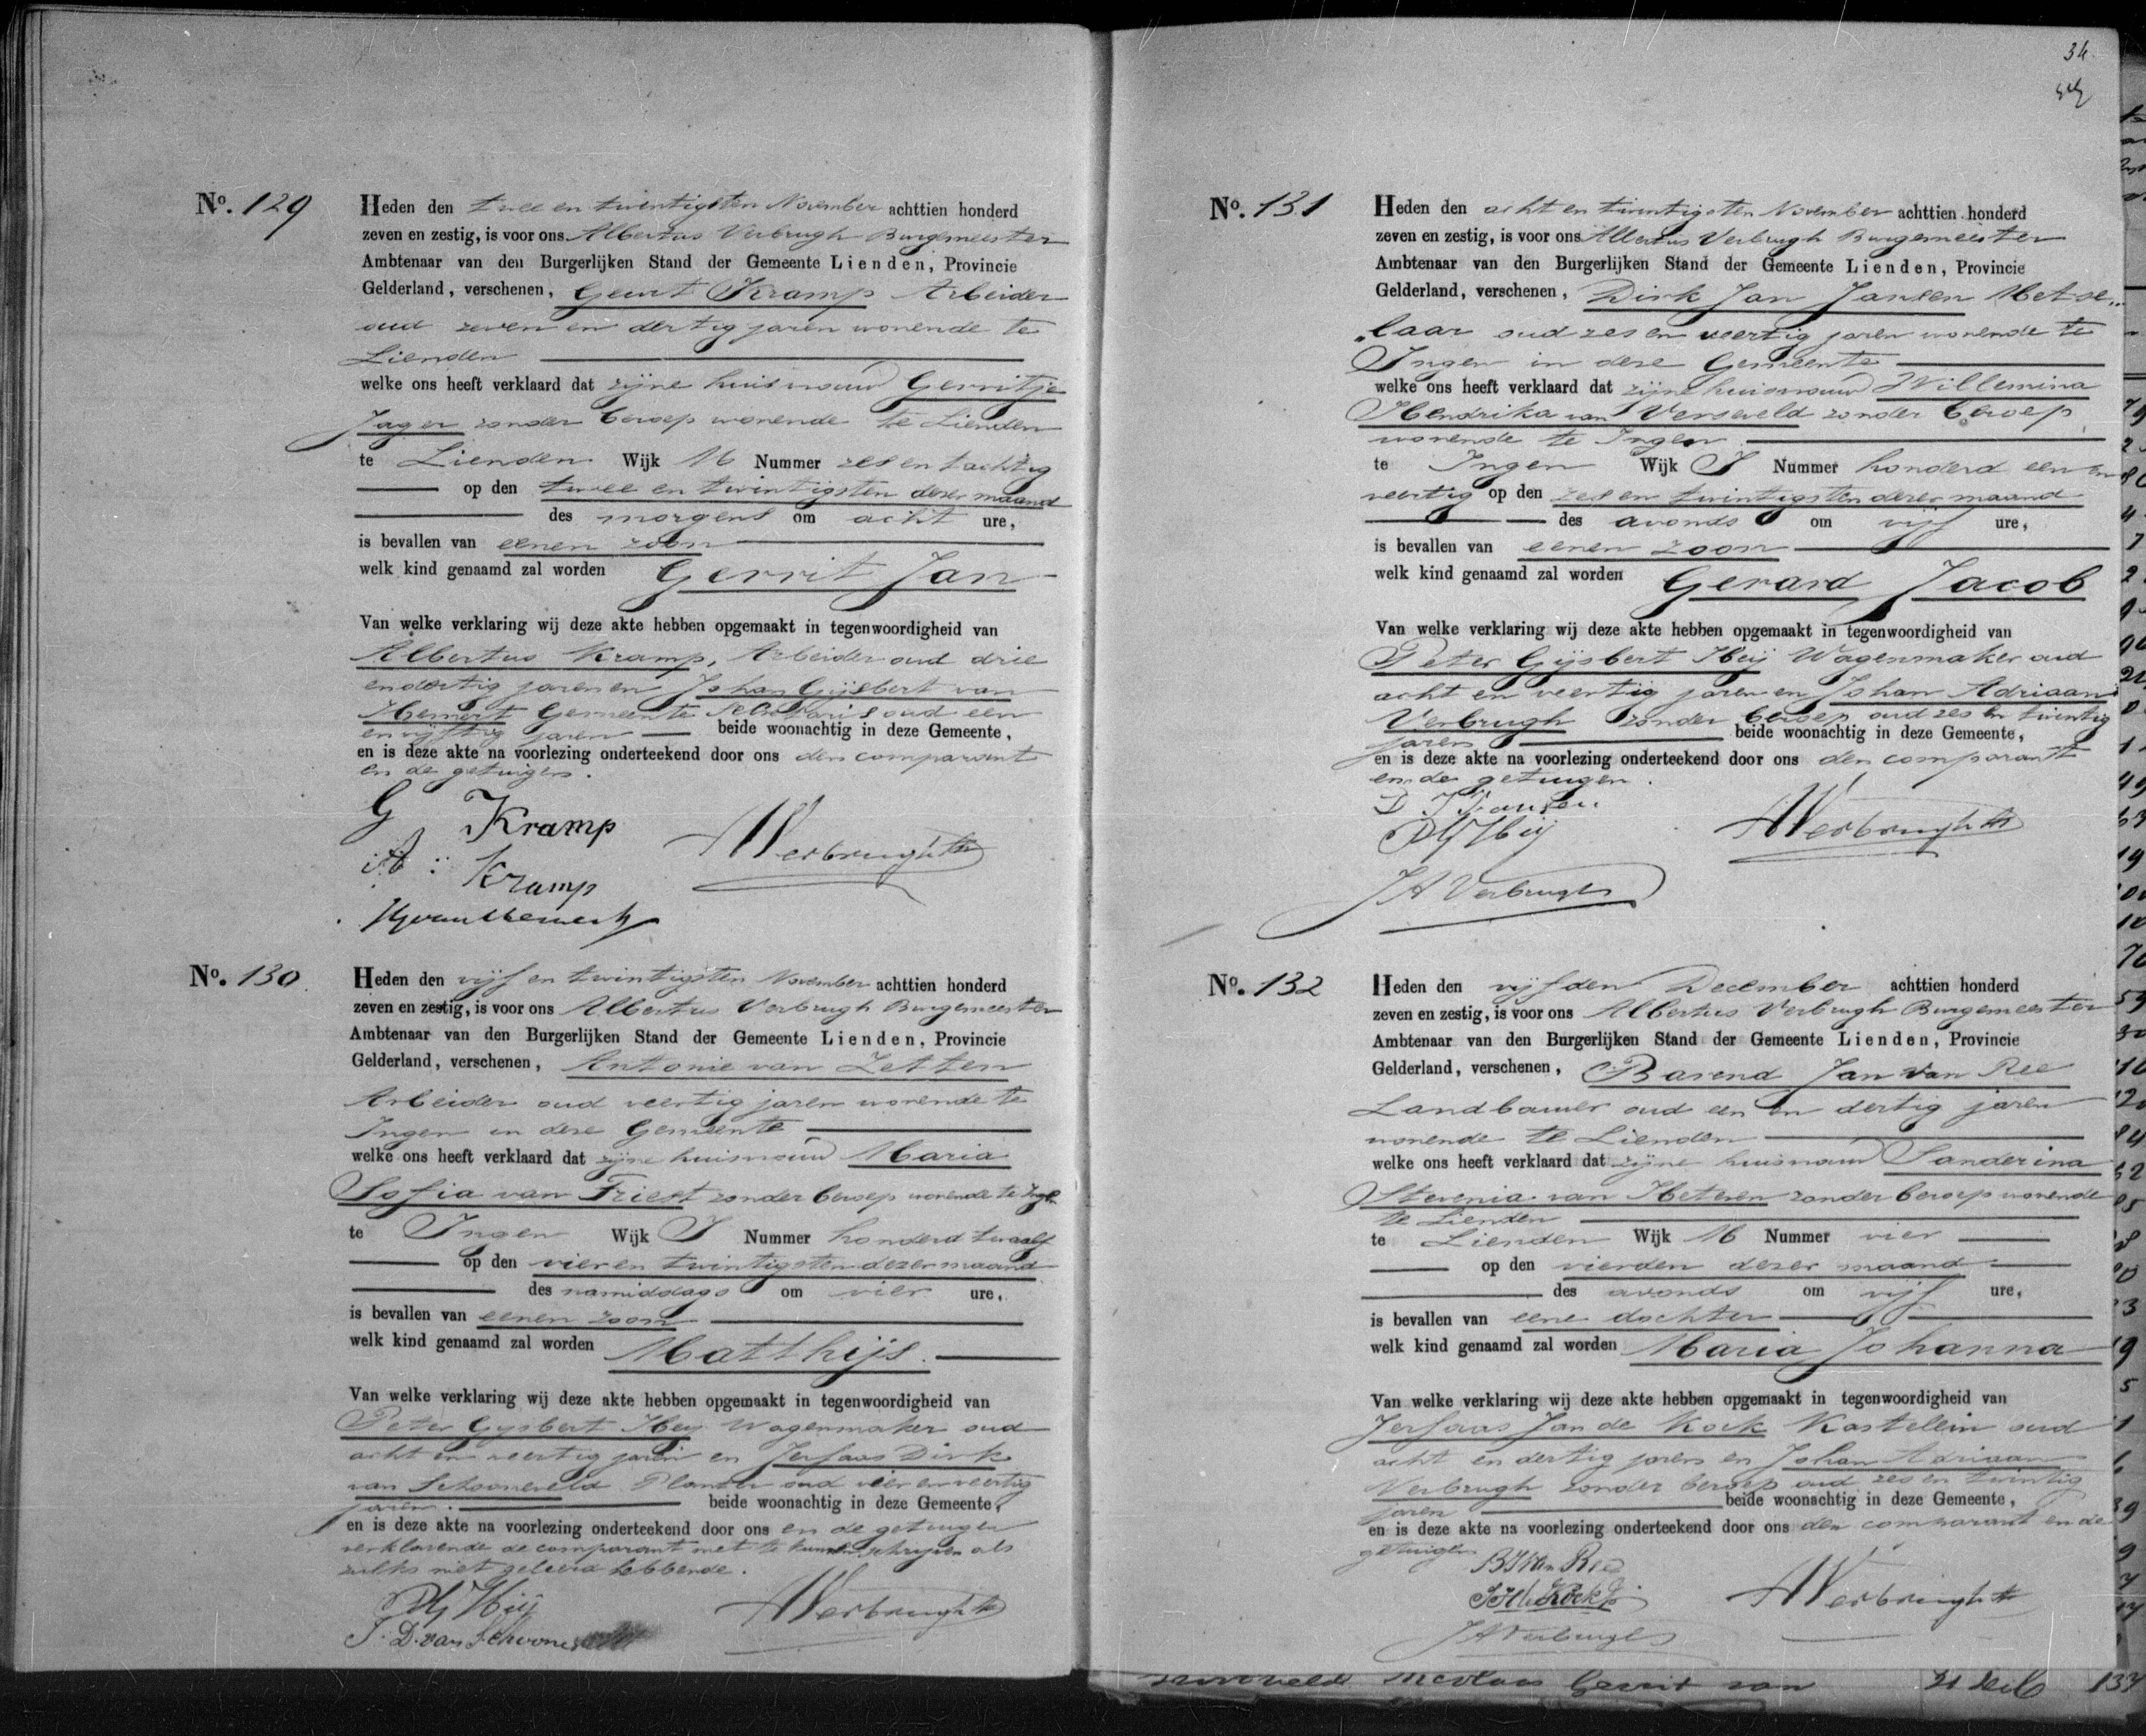 No. 129
Heden den twee en twintigsten November achttien honderd
zeven en zestig, is voor ons Albertus Verbrugh Burgemeester
Ambtenaar van den Burgerlijken Stand der Gemeente Lienden, Provincie
Gelderland, verschenen, Geurt Kramp Arbeider
oud zeven en dertig jaren wonende te
Lienden
welke ons heeft verklaard dat zijne huisvrouw Gerritje
Jager zonder beroep wonende te Lienden
te Lienden Wijk M Nummer zes en tachtig
op den twee en twintigsten dezer maand
des morgens om acht ure,
is bevallen van eenen zoon
welk kind genaamd zal worden Gerrit Jan
Van welke verklaring wij deze akte hebben opgemaakt in tegenwoordigheid van
Albertus Kramp, Arbeider oud drie
en dertig jaren en Johan Gijsbert van
Hemert Gemeente Secretaris oud een
en vijftig jaren beide woonachtig in deze Gemeente,
en is deze akte na voorlezing onderteekend door ons den comparant
en de getuigen.
G Kramp
A: Kramp
AVerbrugh
JGvanHemert
No. 130
Heden den vijf en twintigsten November achttien honderd
zeven en zestig, is voor ons Albertus Verbrugh Burgemeester
Ambtenaar van den Burgerlijken Stand der Gemeente Lienden, Provincie
Gelderland, verschenen, Antonie van Zetten
Arbeider oud veertig jaren wonende te
Ingen in deze Gemeente
welke ons heeft verklaard dat zijne huisvrouw Maria
Sofia van Triest zonder beroep wonende te Ingen
te Ingen Wijk I Nummer honderd twaalf
op den vier en twintigsten dezer maand
des namiddags om vier ure,
is bevallen van eenen zoon
welk kind genaamd zal worden Matthijs.
Van welke verklaring wij deze akte hebben opgemaakt in tegenwoordigheid van
Peter Gijsbert Heij Wagenmaker oud
acht en veertig jaren en Jerfaas Dirk
van Schooneveld Planter oud vier en veertig
jaren. beide woonachtig in deze Gemeente,
en is deze akte na voorlezing onderteekend door ons en de getuigen
verklarende de comparant niet te kunnen schrijven als
zulks niet geleerd hebbende.
PG Heij
AVerbrugh
J. D. van Schooneveld
34
No. 131
Heden den acht en twintigsten November achttien honderd
zeven en zestig, is voor ons Albertus Verbrugh Burgemeester
Ambtenaar van den Burgerlijken Stand der Gemeente Lienden, Provincie
Gelderland, verschenen, Dirk Jan Jansen Metse„
„laar oud zes en veertig jaren wonende te
Ingen in deze Gemeente
welke ons heeft verklaard dat zijne huisvrouw Willemina
Hendrika van Verseveld zonder beroep
wonende te Ingen
te Ingen Wijk I Nummer honderd een en
veertig op den zes en twintigsten dezer maand
des avonds om vijf ure,
is bevallen van eenen zoon
welk kind genaamd zal worden Gerard Jacob
Van welke verklaring wij deze akte hebben opgemaakt in tegenwoordigheid van
Peter Gijsbert Heij Wagenmaker oud
acht en veertig jaren en Johan Adriaan
Verbrugh zonder beroep oud zes en twintig
jaren beide woonachtig in deze Gemeente,
en is deze akte na voorlezing onderteekend door ons den comparant
en de getuigen.
D J Jansen
PG Heij
AVerbrugh
JA Verbrugh
No. 132
Heden den vijfden December achttien honderd
zeven en zestig, is voor ons Albertus Verbrugh Burgemeester
Ambtenaar van den Burgerlijken Stand der Gemeente Lienden, Provincie
Gelderland, verschenen, Barend Jan van Ree
Landbouwer oud een en dertig jaren
wonende te Lienden
welke ons heeft verklaard dat zijne huisvrouw Sanderina
Stevenia van Heteren zonder beroep wonende
te Lienden
te Lienden Wijk M Nummer vier
op den vierden dezer maand
des avonds om vijf ure,
is bevallen van eene dochter
welk kind genaamd zal worden Maria Johanna
Van welke verklaring wij deze akte hebben opgemaakt in tegenwoordigheid van
Jerfaas Jan de Kock Kastelein oud
acht en dertig jaren en Johan Adriaan
Verbrugh zonder beroep oud zes en twintig
jaren beide woonachtig in deze Gemeente,
en is deze akte na voorlezing onderteekend door ons den comparant en de
getuigen
BJ van Ree
JJ de Kock
AVerbrugh
JA Verbrugh
Nicolaas Gerrit van